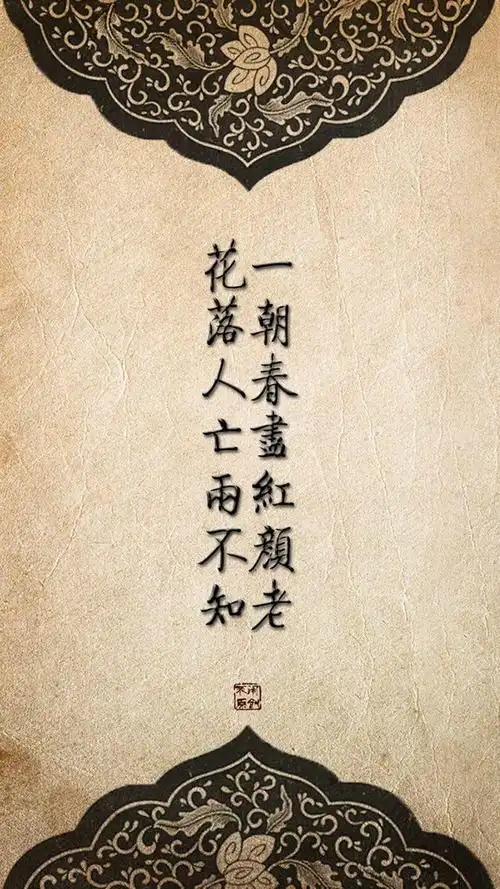 一朝春盡紅顏老
花落人亡兩不知